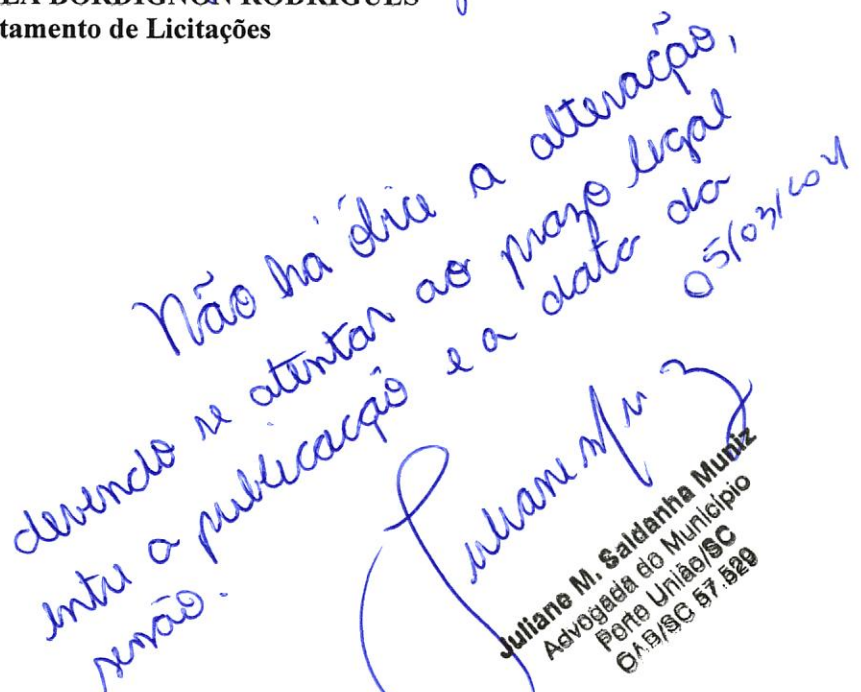 BORDIGNON RODRIGUES
tamento de Licitações
Não há óbice a alteração,
devendo se atentar ao prazo legal
entre a publicação e a data da
sessão.
Juliane M. Saldanha Muniz
Advogada do Município
Porto União/SC
OAB/SC 57.529